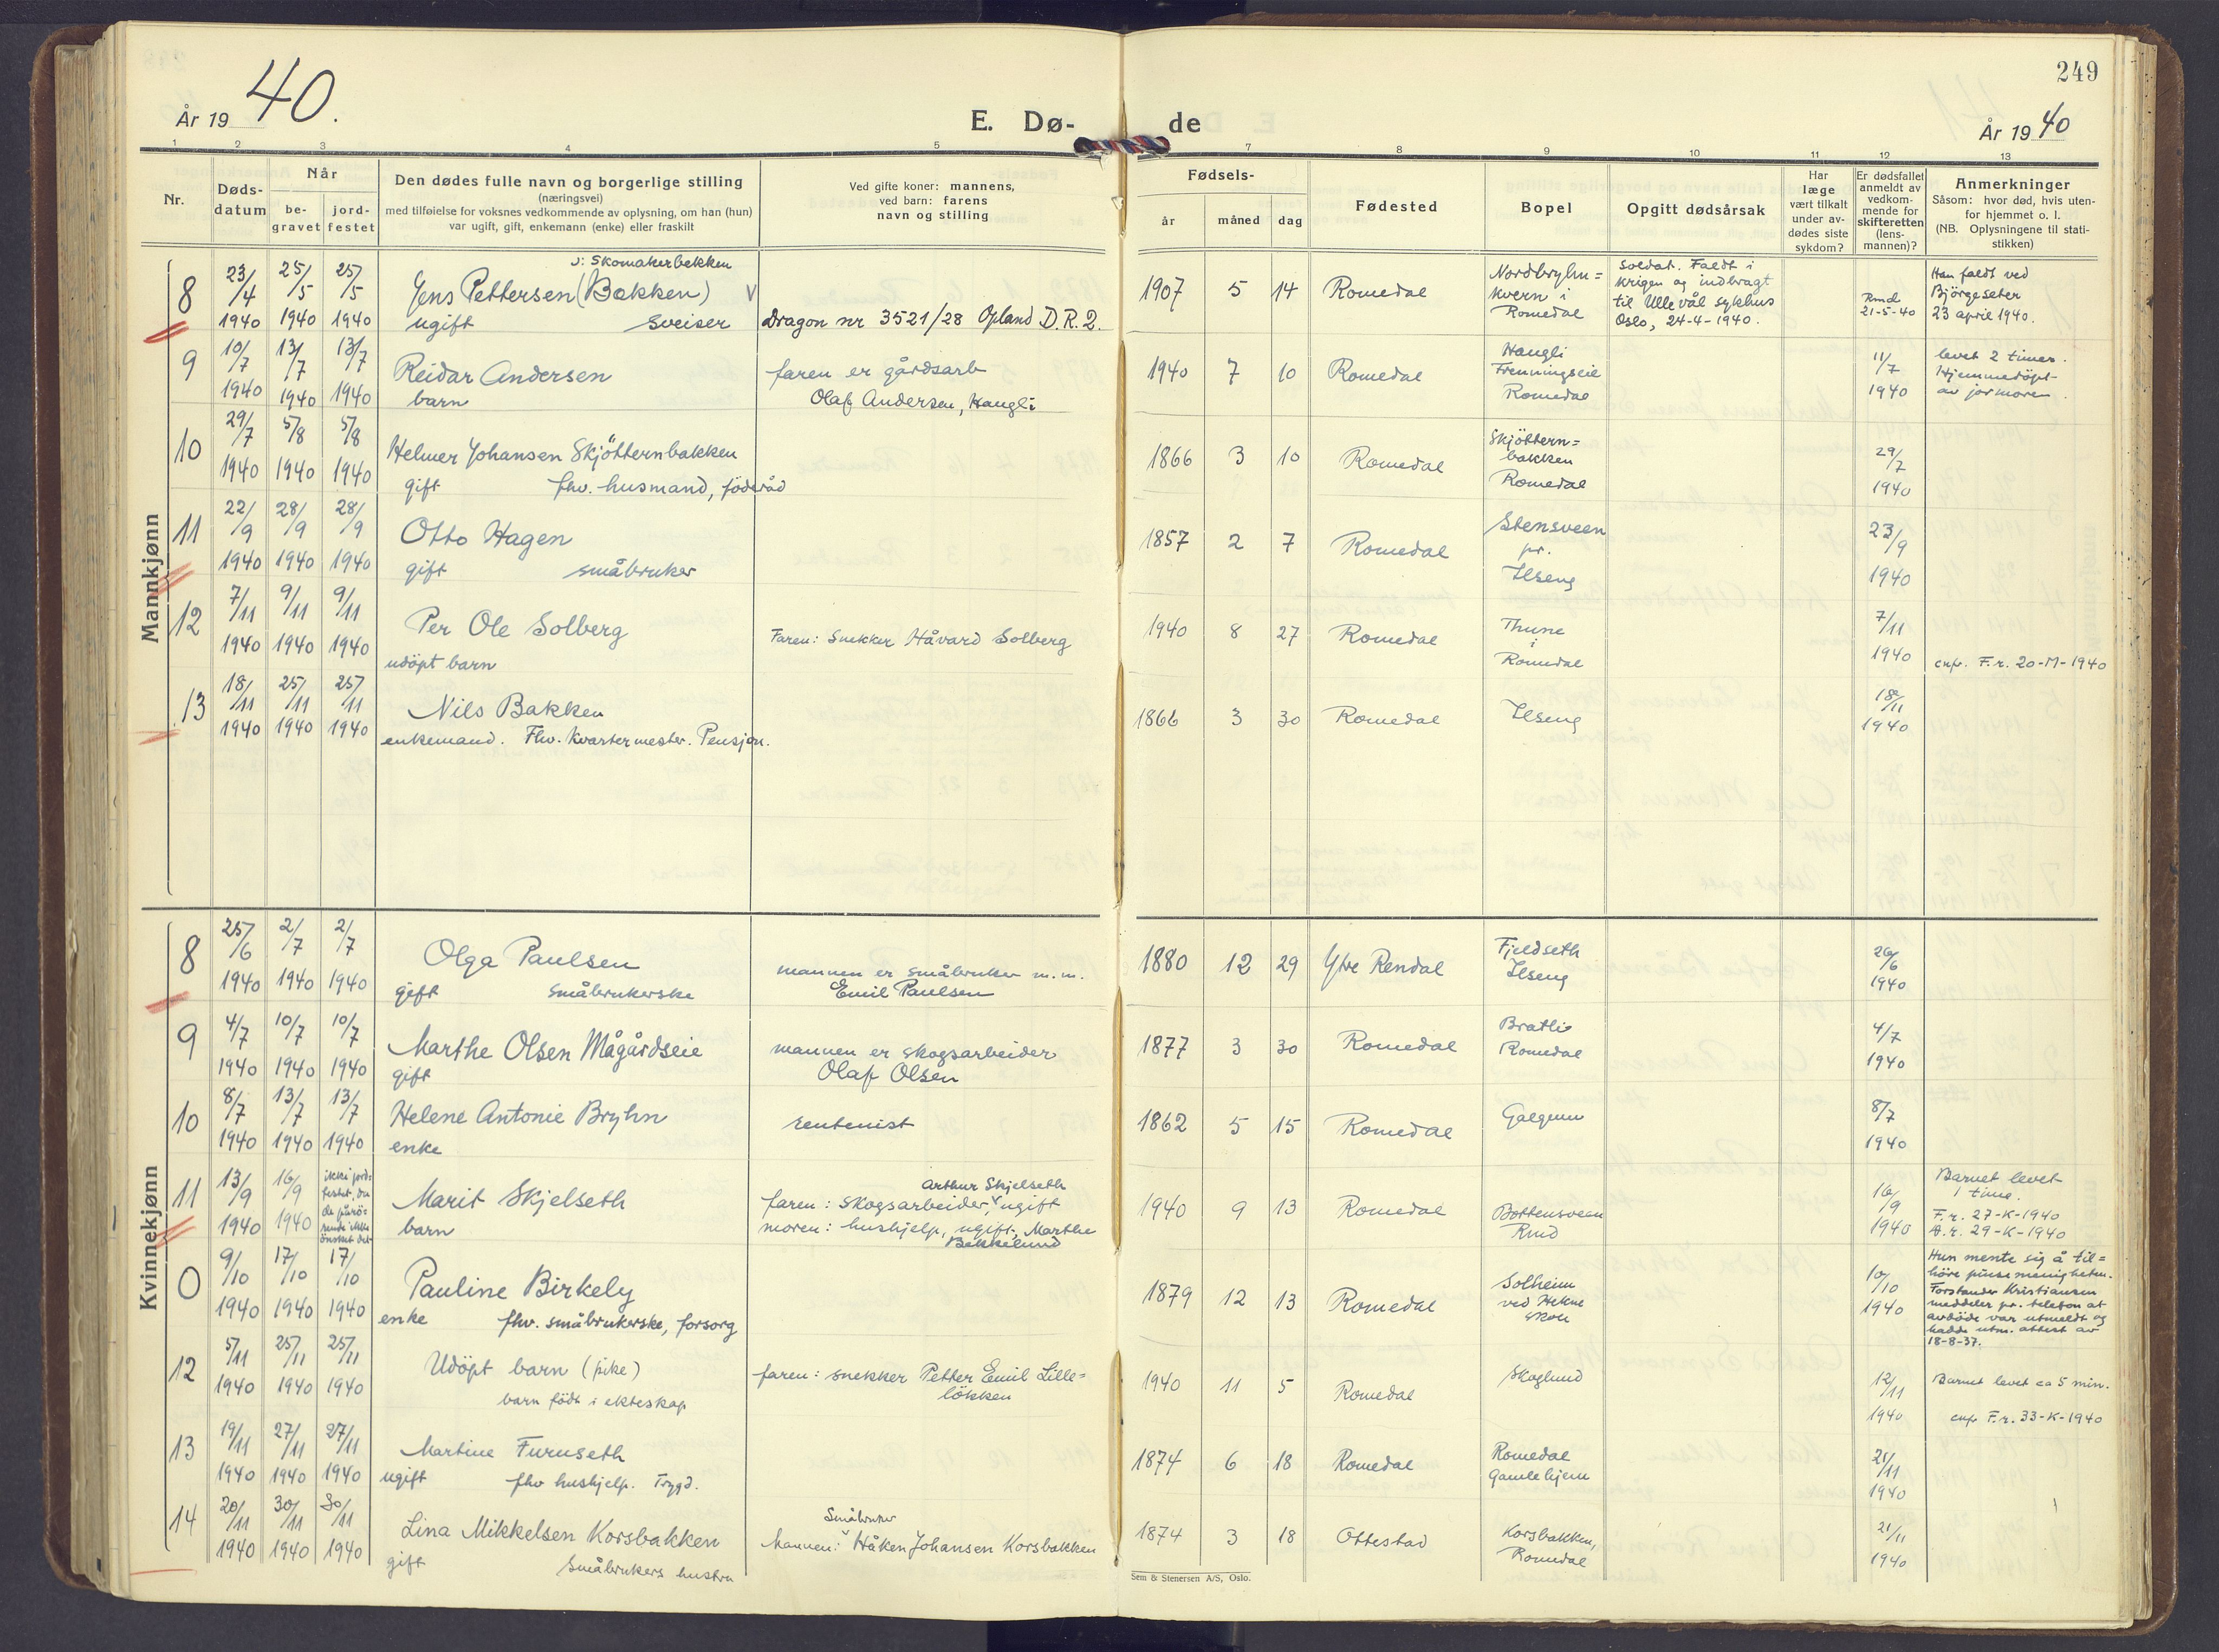 År 19 40.
E. Dø-
de
249
År 19 40
1 2 3 4 5 7 8 9 10 11 12 13
Nr.
Døds-
datum
Når
be-
gravet
jord-
festet
Den dødes fulle navn og borgerlige stilling
(næringsvei)
med tilføielse for voksnes vedkommende av oplysning, om han (hun)
var ugift, gift, enkemann (enke) eller fraskilt
Ved gifte koner: mannens,
ved barn: farens
navn og stilling
Fødsels-
år måned dag
Fødested
Bopel
Opgitt dødsårsak
Har
læge
vært tilkalt
under av-
dødes siste
sykdom?
Er dødsfallet
anmeldt av
vedkom-
mende for
skifteretten
(lens-
mannen)?
Anmerkninger
Såsom: hvor død, hvis uten-
for hjemmet o. l.
(NB. Oplysningene til stati-
stikken)
Mannkjønn
8
23/4 1940
25/5 1940
25/5 1940
ɔ: Skomakerbakken
Jens Pettersen (Bakken) V
ugift sveiser
Dragon nr 3521/28 Opland D.R.2.
1907 5 14 Romedal
Nordbryhn=
kvern i
Romedal
Soldat. Faldt i
krigen og indbragt
til Ullevål sykhus
Oslo, 24-4-1940.
Rmd.
21-5-40
Han faldt ved
Björgeseter
23 april 1940.
9
10/7 1940
13/7 1940
13/7 1940
Reidar Andersen
barn
faren er gårdsarb
Olaf Andersen, Haugli
1940 7 10 Romedal
Haugli
Frenningseie
Romedal
11/7 1940
levet 2 timer.
Hjemmedöpt
av jormoren.
10
29/7 1940
5/8 1940
5/8 1940
Helmer Johansen Skjötternbakken
gift fhv. husmand, föderåd
1866 3 10 Romedal
Skjöttern=
bakken
Romedal
29/7 1940
11
22/9 1940
28/9 1940
28/9 1940
Otto Hagen
gift småbruker
1857 2 7 Romedal
Stensveen
pr.
Ilseng
23/9 1940
12
7/11 1940
9/11 1940
9/11 1940
Per Ole Solberg
udöpt barn
Faren: Snekker Håvard Solberg
1940 8 27 Romedal
Thune
i
Romedal
7/11 1940
cnfr. F.r. 20-M-1940
13
18/11 1940
25/11 1940
25/11 1940
Nils Bakken
enkemand. Fhv. Kvartermester. Pensjon.
1866 3 30 Romedal
Ilseng
18/11 1940
Kvinnekjønn
8
25/6 1940
2/7 1940
2/7 1940
Olga Paulsen
gift småbrukerske
mannen er småbruker m.m.
Emil Paulsen
1880 12 29 Ytre Rendal
Fjeldseth
Ilseng
26/6 1940
9
4/7 1940
10/7 1940
10/7 1940
Marthe Olsen Mågårdseie
gift
mannen er skogsarbeider
Olaf Olsen
1877 3 30 Romedal
Bratli
Romedal
4/7 1940
10
8/7 1940
13/7 1940
13/7 1940
Helene Antonie Bryhn
enke
rentenist
1862 5 15 Romedal
Gaegum
8/7 1940
11
13/9 1940
16/9 1940
ikke jord=
festet, da
de pårö=
rende ikke
önsket det
Marit Skjelseth
barn
Arthur Skjelseth
faren: skogsarbeider, ugift
moren: hushjelp, ugift, Marthe
Bekkelund
1940 9 13 Romedal
Bottensveen
Rud
16/9 1940
Barnet levet
1 time.
F.r. 27-K-1940
A.r. 29-K-1940
0
9/10 1940
17/10 1940
17/10 1940
Pauline Birkely
enke fhv. småbrukerske, forsorg
1879 12 13 Romedal
Solheim
ved Hekne
skole
10/10 1940
Hun mente sig å til=
höre pinsemenigheten.
Forstander Kristiansen
meddeler pr. telefon at
avdöde var utmeldt og
hadde utm. attest av
18-8-37.
12
5/11 1940
25/11 1940
25/11 1940
Udöpt barn (pike)
barn födt i ekteskap
faren: snekker Petter Emil Lille=
lökken
1940 11 5 Romedal
Skoglund
12/11 1940
Barnet levet ca 5 min.
cnfr F.r. 33-K-1940
13
19/11 1940
27/11 1940
27/11 1940
Martine Furuseth
ugift fhv hushjelp. Trygd.
1874 6 18 Romedal
Romedal
Gamlehjem
21/11 1940
14
20/11 1940
30/11 1940
30/11 1940
Lina Mikkelsen Korsbakken
gift småbrukers hustru
Småbruker
Mannen: Håken Johansen Korsbakken
1874 3 18 Ottestad
Korsbakken,
Romedal
21/11 1940
Sem & Stenersen A/S, Oslo.